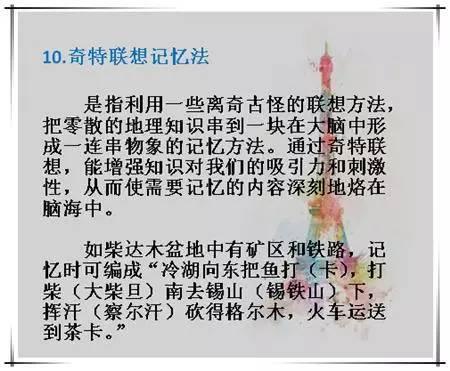 10.奇特联想记忆法
是指利用一些离奇古怪的联想方法，
把零散的地理知识串到一块在大脑中形
成一连串物象的记忆方法。通过奇特联
想，能增强知识对我们的吸引力和刺激
性，从而使需要记忆的内容深刻地烙在
脑海中。
如柴达木盆地中有矿区和铁路，记
忆时可编成“冷湖向东把鱼打（卡），打
柴（大柴旦）南去锡山（锡铁山）下，
挥汗（察尔汗）砍得格尔木，火车运送
到茶卡。”